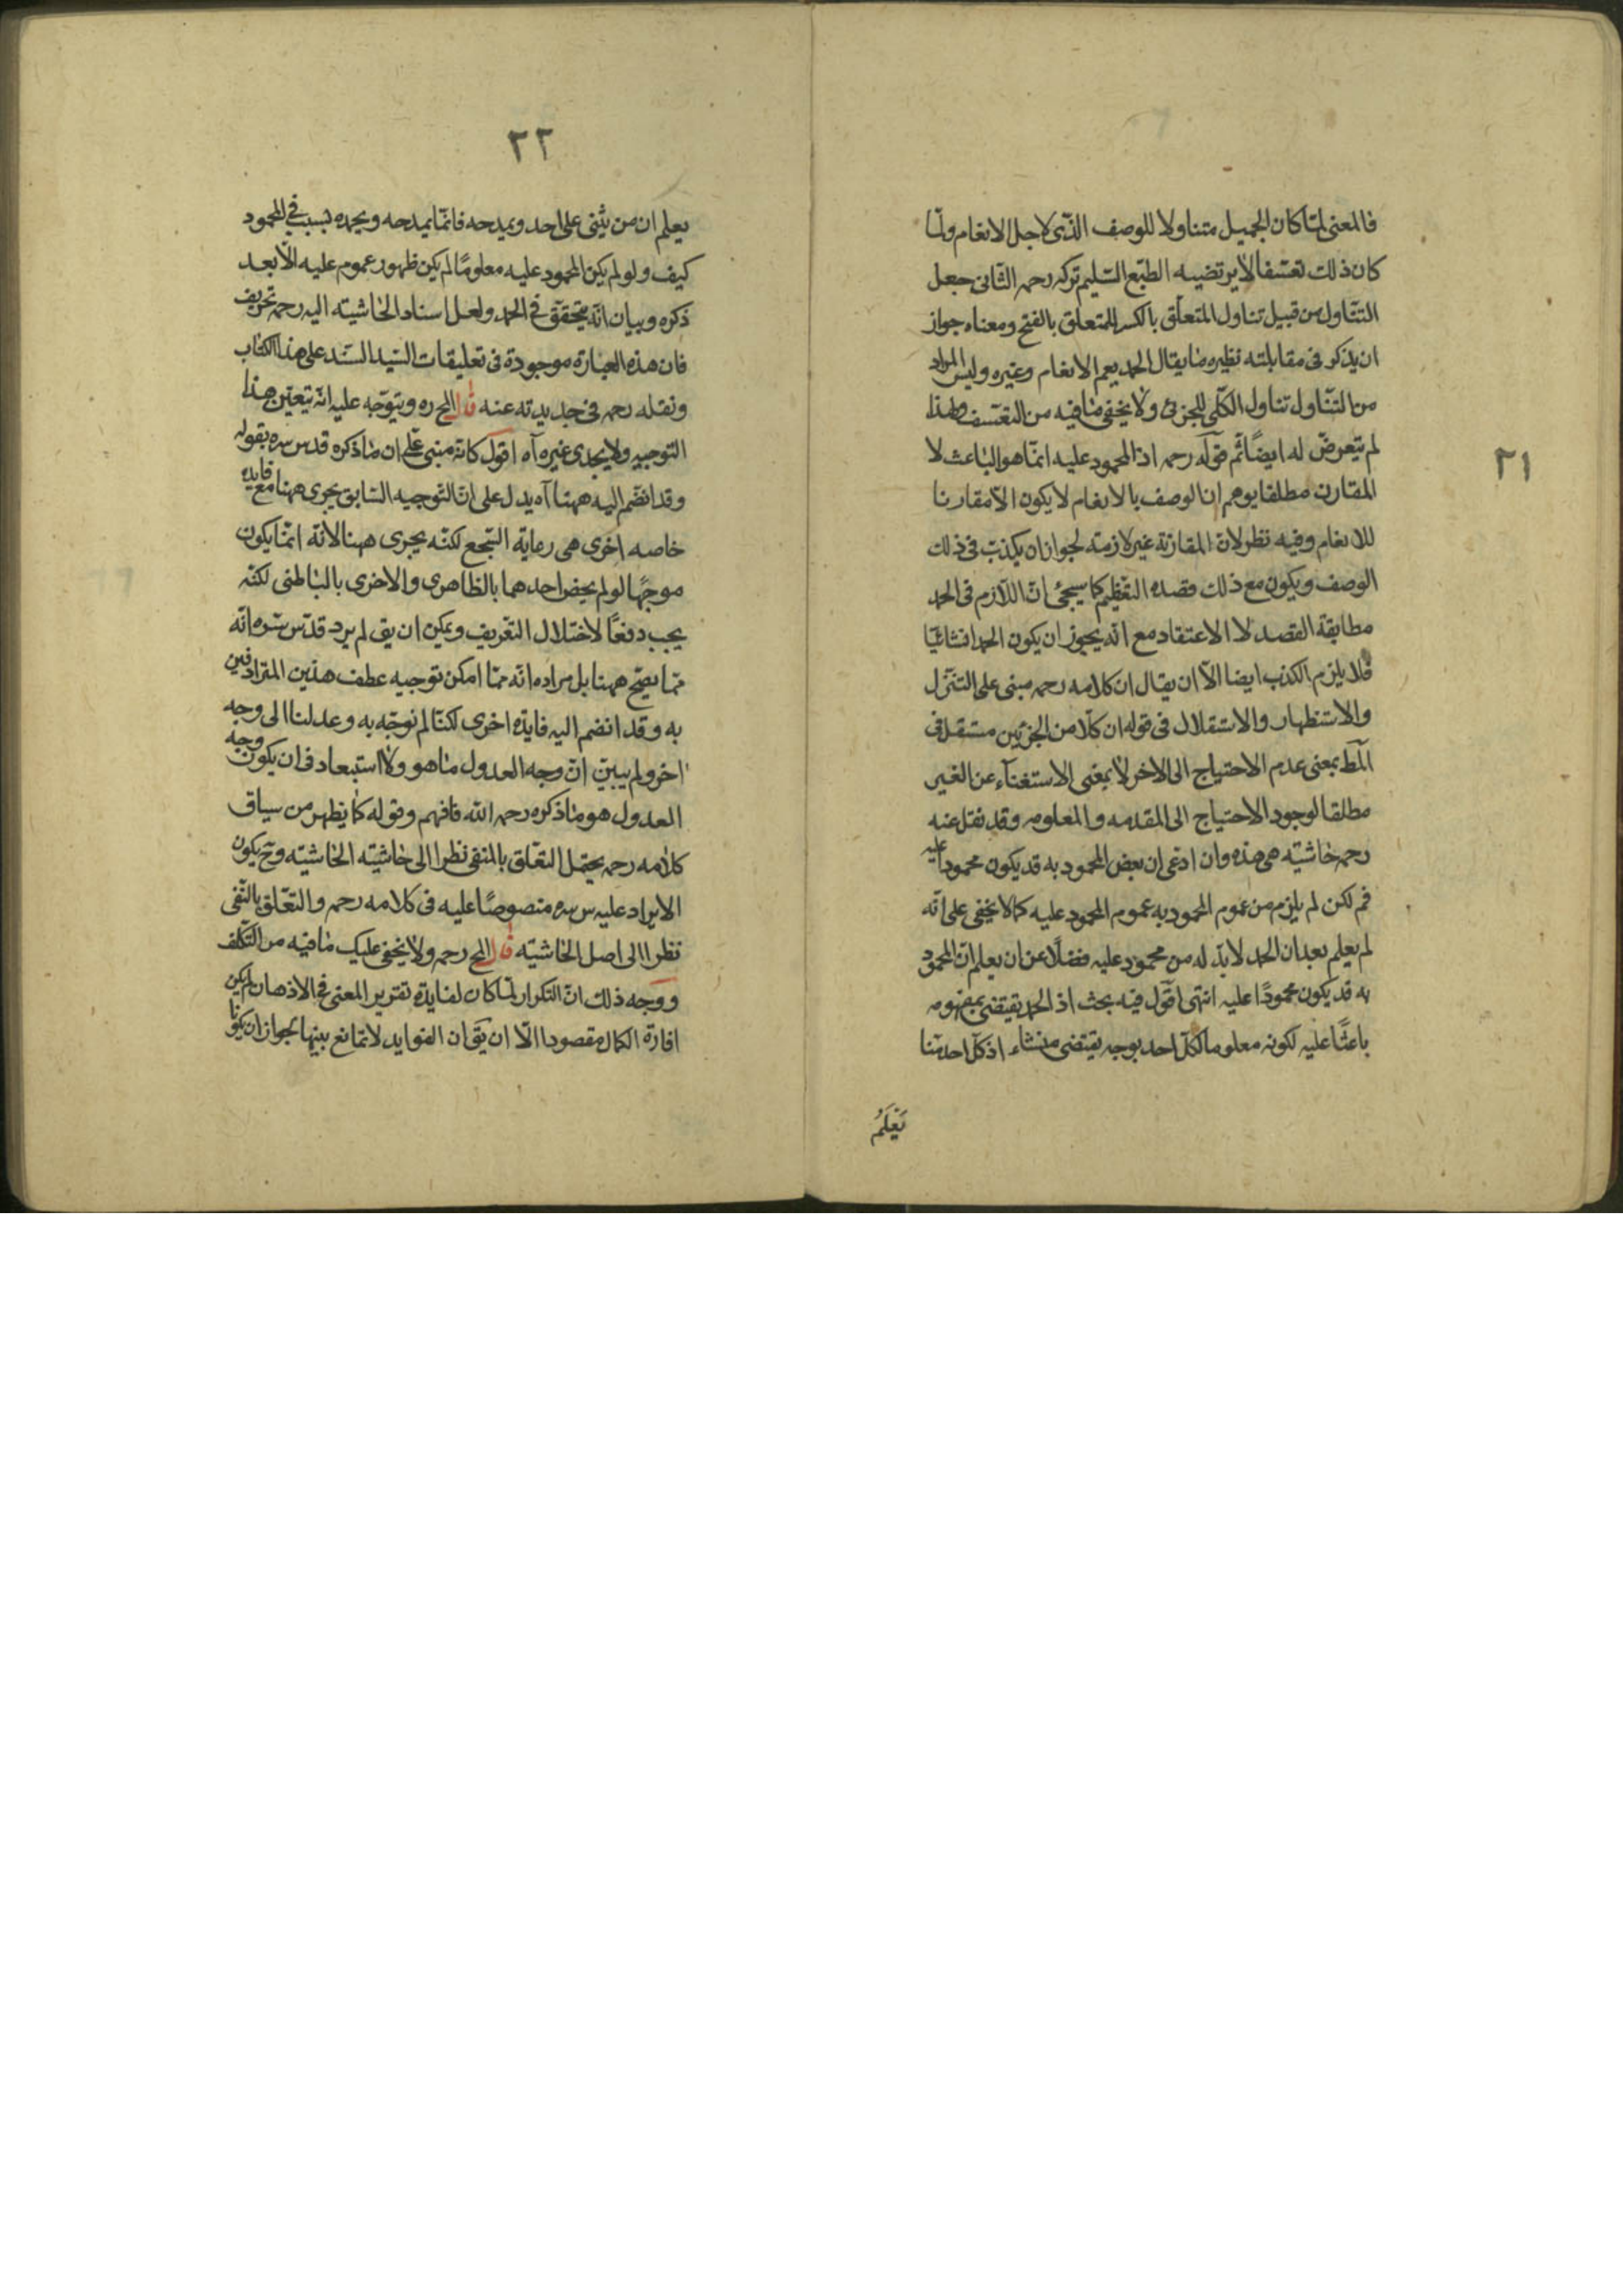 ٢١
فالمعنى لمّا كان الجميل متناولا للوصف الذّى لاجل الانعام ولمّا
كان ذلك تعسّفا لا يرتضيه الطبّع السّليم تركه رحمه الثّانى جعل
التنّاول من قبيل تناول المتعلّق بالكسر للمتعلق بالفتح ومعناه جواز
ان يذكر فى مقابلته نظيره ما يقال الحمد يعم الانعام وغيره وليس المراد
من التنّاول تناول الكلّى للجزئى ولا يخفى ما فيه من التعّسف ولهذا
لم يتعرضّ له ايضًا ثمّ قوله رحمه اذ المحمود عليه انمّا هو الباعث لا
المقارن مطلقا يوهم ان الوصف بالانعام لا يكون الّا مقارنا
للانعام وفيه نظر لان المقارنة غير لازمة لجواز ان يكذب فى ذلك
الوصف ويكون مع ذلك قصده التعّظيم كما سيجئ انّ اللّازم فى الحمد
مطابقة القصد لا الاعتقاد مع انّه يجوز ان يكون الحمد انشائيّا
فلا يلزم الكذب ايضا الّا ان يقال ان كلامه رحمه مبنى على التنّزل
والاستظهار والاستقلال فى قوله ان كلّا من الجزئين مستقل فى
المط بمعنى عدم الاحتياج الى الاخر لا بمعنى الاستغنآء عن الغير
مطلقا لوجود الاحتياج الى المقدمه والمعلومه وقد نقل عنه
رحمه حاشيته هى هذه وان ادعى ان بعض المحمود به قد يكون محمودا عليه
فم لكن لم يلزم من عموم المحمود به عموم المحمود عليه كما لا يخفى على انّه
لم يعلم بعد ان الحمد لا بدّ له من محمود عليه فضلًا عن ان يعلم انّ المحمود
به قد يكون محمودًا عليه انتهى اقول فيه بحث اذ الحمد يقتضى بمفهومه
باعثًا عليه لكونه معلوما لكلّ احد بوجه يقتضى منشاء اذ كلّ احد منّا
يَعْلَمُ
٢٢
يعلم ان من يثنى على احد ويمدحه فانمّا يمدحه ويحمده بسبب فى المحمود
كيف ولو لم يكن المحمود عليه معلومًا لم يكن ظهور عموم عليه الّا بعد
ذكره وبيان انّه يتحقّق فى الحمد ولعل اسناد الحاشيته اليه رحمه تحريف
فان هذه العبارة موجودة فى تعليقات السّيد السّند على هذا الكتاب
ونقله رحمه فى جديدته عنه قال المح ره ويتوّجه عليه انّه يتعيّن هذا
التوجيه ولا يجدى غيره آه اقول كانّه مبنى على ان ما ذكره قدس سره بقوله
وقد انضّم اليه ههنا آه يدل على انّ التوجيه السّابق يجرى ههنا مع فايدة
خاصه اخرى هى رعاية السّجع لكنّه يجرى ههنا لانّه انمّا يكون
موجهًا لو لم يخص احدهما بالظاهرى والاخرى بالباطنى لكنّه
يجب دفعًا لاختلال التعّريف ويمكن ان يق لم يرد قدّس سّره انّه
ممّا يصّح ههنا بل مراده انّه ممّا امكن توجيه عطف هذين المترادفين
به وقد انضم اليه فايدة اخرى لكنّا لم نوجّه به وعدلنا الى وجه
اخر ولم يبيّن انّ وجه العدول ما هو ولا استبعاد فى ان يكون وجه
العدول هو ما ذكره رحمه الله فافهم وقوله كما يظهر من سياق
كلامه رحمه يحتمل التعّلق بالمنفى نظرا الى حاشيته الحاشيته وح يكون
الايراد عليه س سره منصوصًا عليه فى كلامه رحمه والتعّلق بالنّفى
نظرا الى اصل الحاشيّته قال المح رحمه ولا يخفى عليك ما فيه من التكّلف
ووجه ذلك انّ التكرار لمّا كان لفايدة تقرير المعنى فى الاذهان لم يكن
افادة الكمال مقصودا الّا ان يق ان الفوايد لا تمانع بينها لجواز ان يكونا